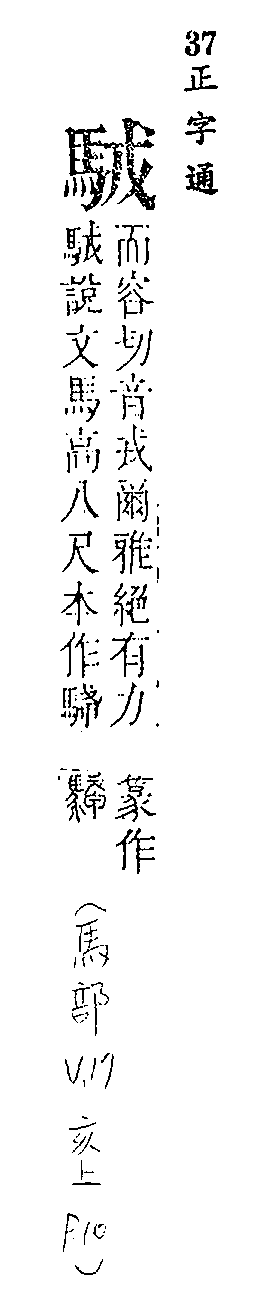 37 正字通
駥
而容切音戎爾雅絕有力
駥說文馬高八尺本作
篆作
(馬部 V.17 亥上 P.10)